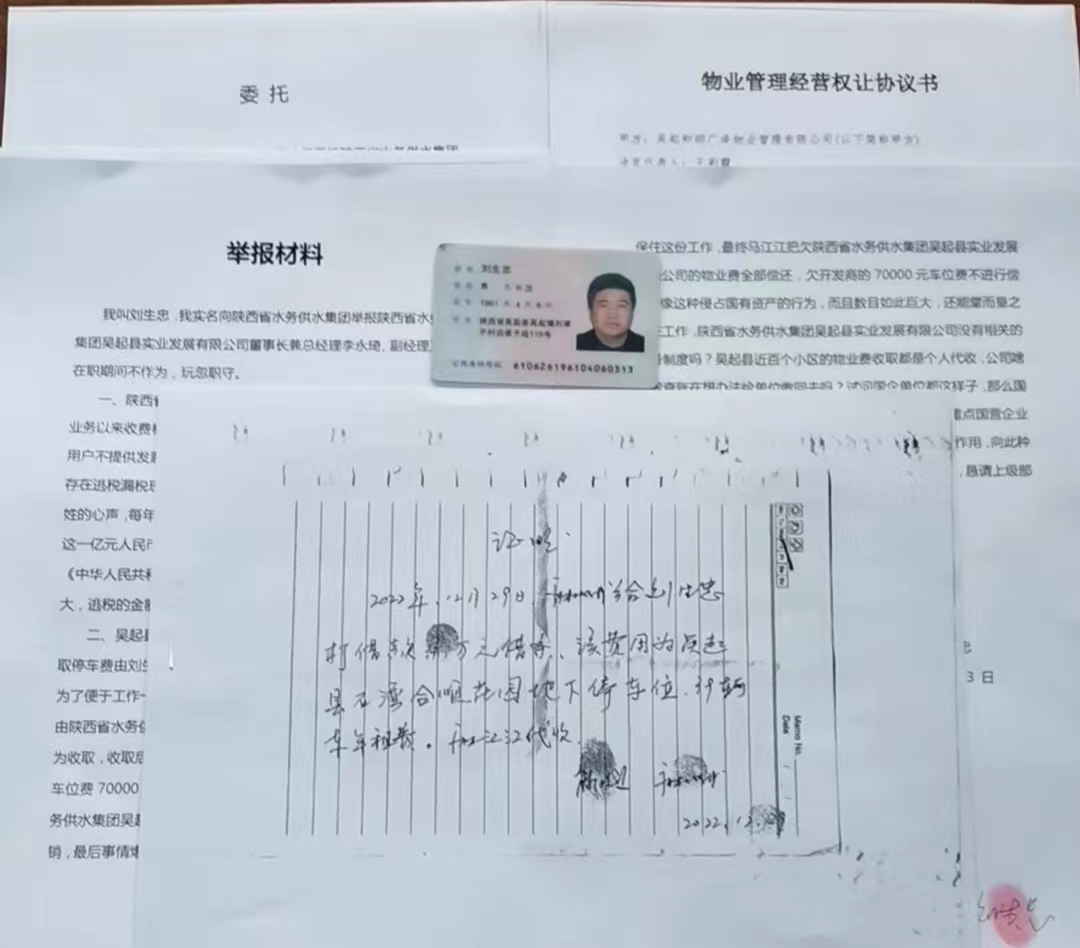 委 托
物业管理经营权让协议书
甲方：吴起和顺广泽物业管理有限公司(以下简称甲方)
举报材料
我叫刘生忠，我实名向陕西省水务供水集团举报陕西省水
集团吴起县实业发展有限公司董事长兼总经理李永琦，副经理
在职期间不作为，玩忽职守。
一、陕西省
业务以来收费
用户不提供发
存在逃税漏税
姓的心声，每年
这一亿元人民
《中华人民共和
大，逃税的金额
二、吴起县
取停车费由刘生
为了便于工作
由陕西省水务供
为收取，收取后
车位费 70000
务供水集团吴起
销，最后事情
保住这份工作，最终马江江把欠陕西省水务供水集团吴起县实业发展
公司的物业费全部偿还，欠开发商的 70000 元车位费不进行偿
像这种侵占国有资产的行为，而且数目如此巨大，还能堂而皇之
工作，陕西省水务供水集团吴起县实业发展有限公司没有相关的
制度吗？吴起县近百个小区的物业费收取都是个人代收，公司啥
到在想办法给单位缴回去吗？试问国企单位都这样子，那么国
重点国营企业
作用，向此种
，恳请上级部
3 日
刘生忠
男
1961 年 4 月 6 日
公民身份号码 610626196104060313
证明
2022年.12月29日
打借款
万元借条、该费用为吴起
县石湾合顺花园地下停车位.
车年租费。
江江代收.
2022.12.
Memo No.
Date
刘生忠